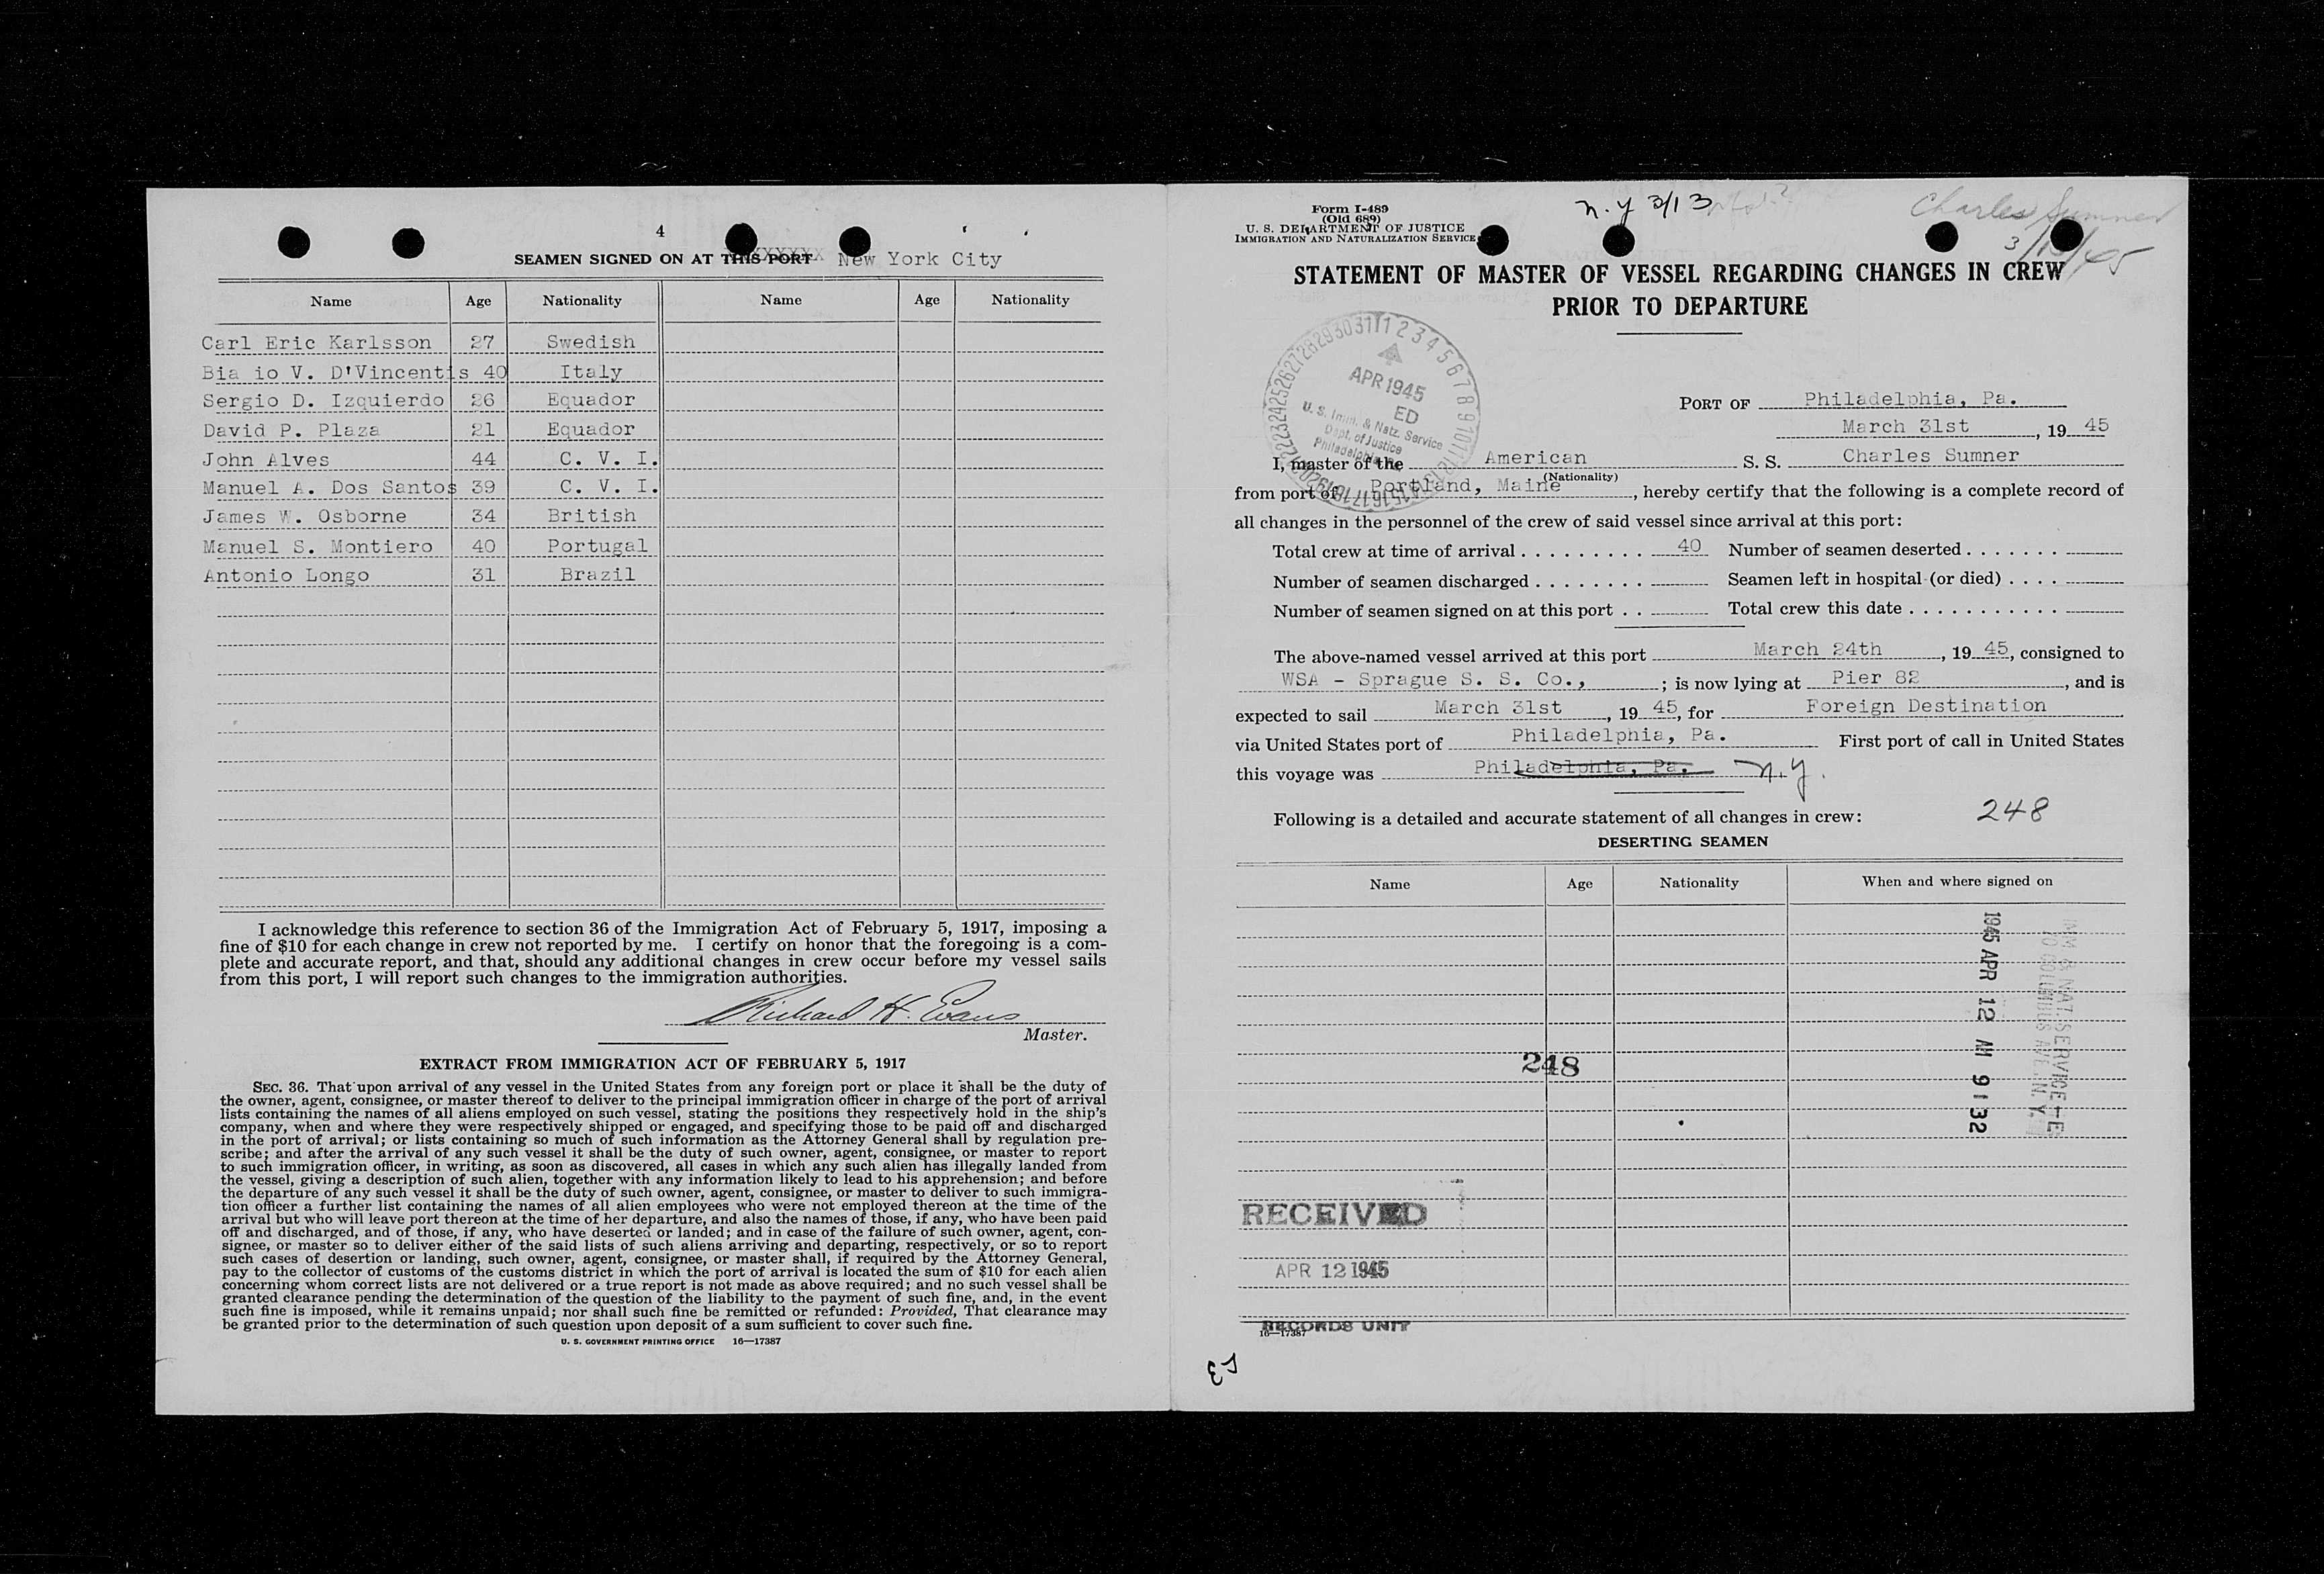 4
SEAMEN SIGNED ON AT THIS PORT New York City
Name Age Nationality Name Age Nationality
Carl Eric Karlsson 27 Swedish
Bia io V. D'Vincentis 40 Italy
Sergio D. Izquierdo 26 Equador
David P. Plaza 21 Equador
John Alves 44 C. V. I.
Manuel A. Dos Santos 39 C. V. I.
James W. Osborne 34 British
Manuel S. Montiero 40 Portugal
Antonio Longo 31 Brazil
I acknowledge this reference to section 36 of the Immigration Act of February 5, 1917, imposing a
fine of $10 for each change in crew not reported by me. I certify on honor that the foregoing is a com-
plete and accurate report, and that, should any additional changes in crew occur before my vessel sails
from this port, I will report such changes to the immigration authorities.
Richard H. Evans
Master.
EXTRACT FROM IMMIGRATION ACT OF FEBRUARY 5, 1917
SEC. 36. That upon arrival of any vessel in the United States from any foreign port or place it shall be the duty of
the owner, agent, consignee, or master thereof to deliver to the principal immigration officer in charge of the port of arrival
lists containing the names of all aliens employed on such vessel, stating the positions they respectively hold in the ship's
company, when and where they were respectively shipped or engaged, and specifying those to be paid off and discharged
in the port of arrival; or lists containing so much of such information as the Attorney General shall by regulation pre-
scribe; and after the arrival of any such vessel it shall be the duty of such owner, agent, consignee, or master to report
to such immigration officer, in writing, as soon as discovered, all cases in which any such alien has illegally landed from
the vessel, giving a description of such alien, together with any information likely to lead to his apprehension; and before
the departure of any such vessel it shall be the duty of such owner, agent, consignee, or master to deliver to such immigra-
tion officer a further list containing the names of all alien employees who were not employed thereon at the time of the
arrival but who will leave port thereon at the time of her departure, and also the names of those, if any, who have been paid
off and discharged, and of those, if any, who have deserted or landed; and in case of the failure of such owner, agent, con-
signee, or master so to deliver either of the said lists of such aliens arriving and departing, respectively, or so to report
such cases of desertion or landing, such owner, agent, consignee, or master shall, if required by the Attorney General,
pay to the collector of customs of the customs district in which the port of arrival is located the sum of $10 for each alien
concerning whom correct lists are not delivered or a true report is not made as above required; and no such vessel shall be
granted clearance pending the determination of the question of the liability to the payment of such fine, and, in the event
such fine is imposed, while it remains unpaid; nor shall such fine be remitted or refunded: Provided, That clearance may
be granted prior to the determination of such question upon deposit of a sum sufficient to cover such fine.
U. S. GOVERNMENT PRINTING OFFICE 16—17387
Form I-489
(Old 689)
U. S. DEPARTMENT OF JUSTICE
IMMIGRATION AND NATURALIZATION SERVICE
N. Y 3/13
Charles Sumner
3/13/45
STATEMENT OF MASTER OF VESSEL REGARDING CHANGES IN CREW
PRIOR TO DEPARTURE
APR 1945
ED
U. S. Imm. & Natz. Service
Dept. of Justice
Philadelphia, Pa.
PORT OF Philadelphia, Pa.
March 31st, 19 45
I, master of the American S. S. Charles Sumner
(Nationality)
from port of Portland, Maine, hereby certify that the following is a complete record of
all changes in the personnel of the crew of said vessel since arrival at this port:
Total crew at time of arrival . . . . . . . . . 40 Number of seamen deserted . . . . . . .
Number of seamen discharged . . . . . . . . Seamen left in hospital (or died) . . . .
Number of seamen signed on at this port . . Total crew this date . . . . . . . . . . . .
The above-named vessel arrived at this port March 24th, 19 45, consigned to
WSA - Sprague S. S. Co., ; is now lying at Pier 82, and is
expected to sail March 31st, 19 45, for Foreign Destination
via United States port of Philadelphia, Pa. First port of call in United States
this voyage was Philadelphia, Pa. N.Y.
Following is a detailed and accurate statement of all changes in crew: 248
DESERTING SEAMEN
Name Age Nationality When and where signed on
1945 APR 12 AM 9 32
IMM & NAT. SERVICE
70 COLUMBUS AVE. N. Y.
248
RECEIVED
APR 12 1945
RECORDS UNIT
16—17387